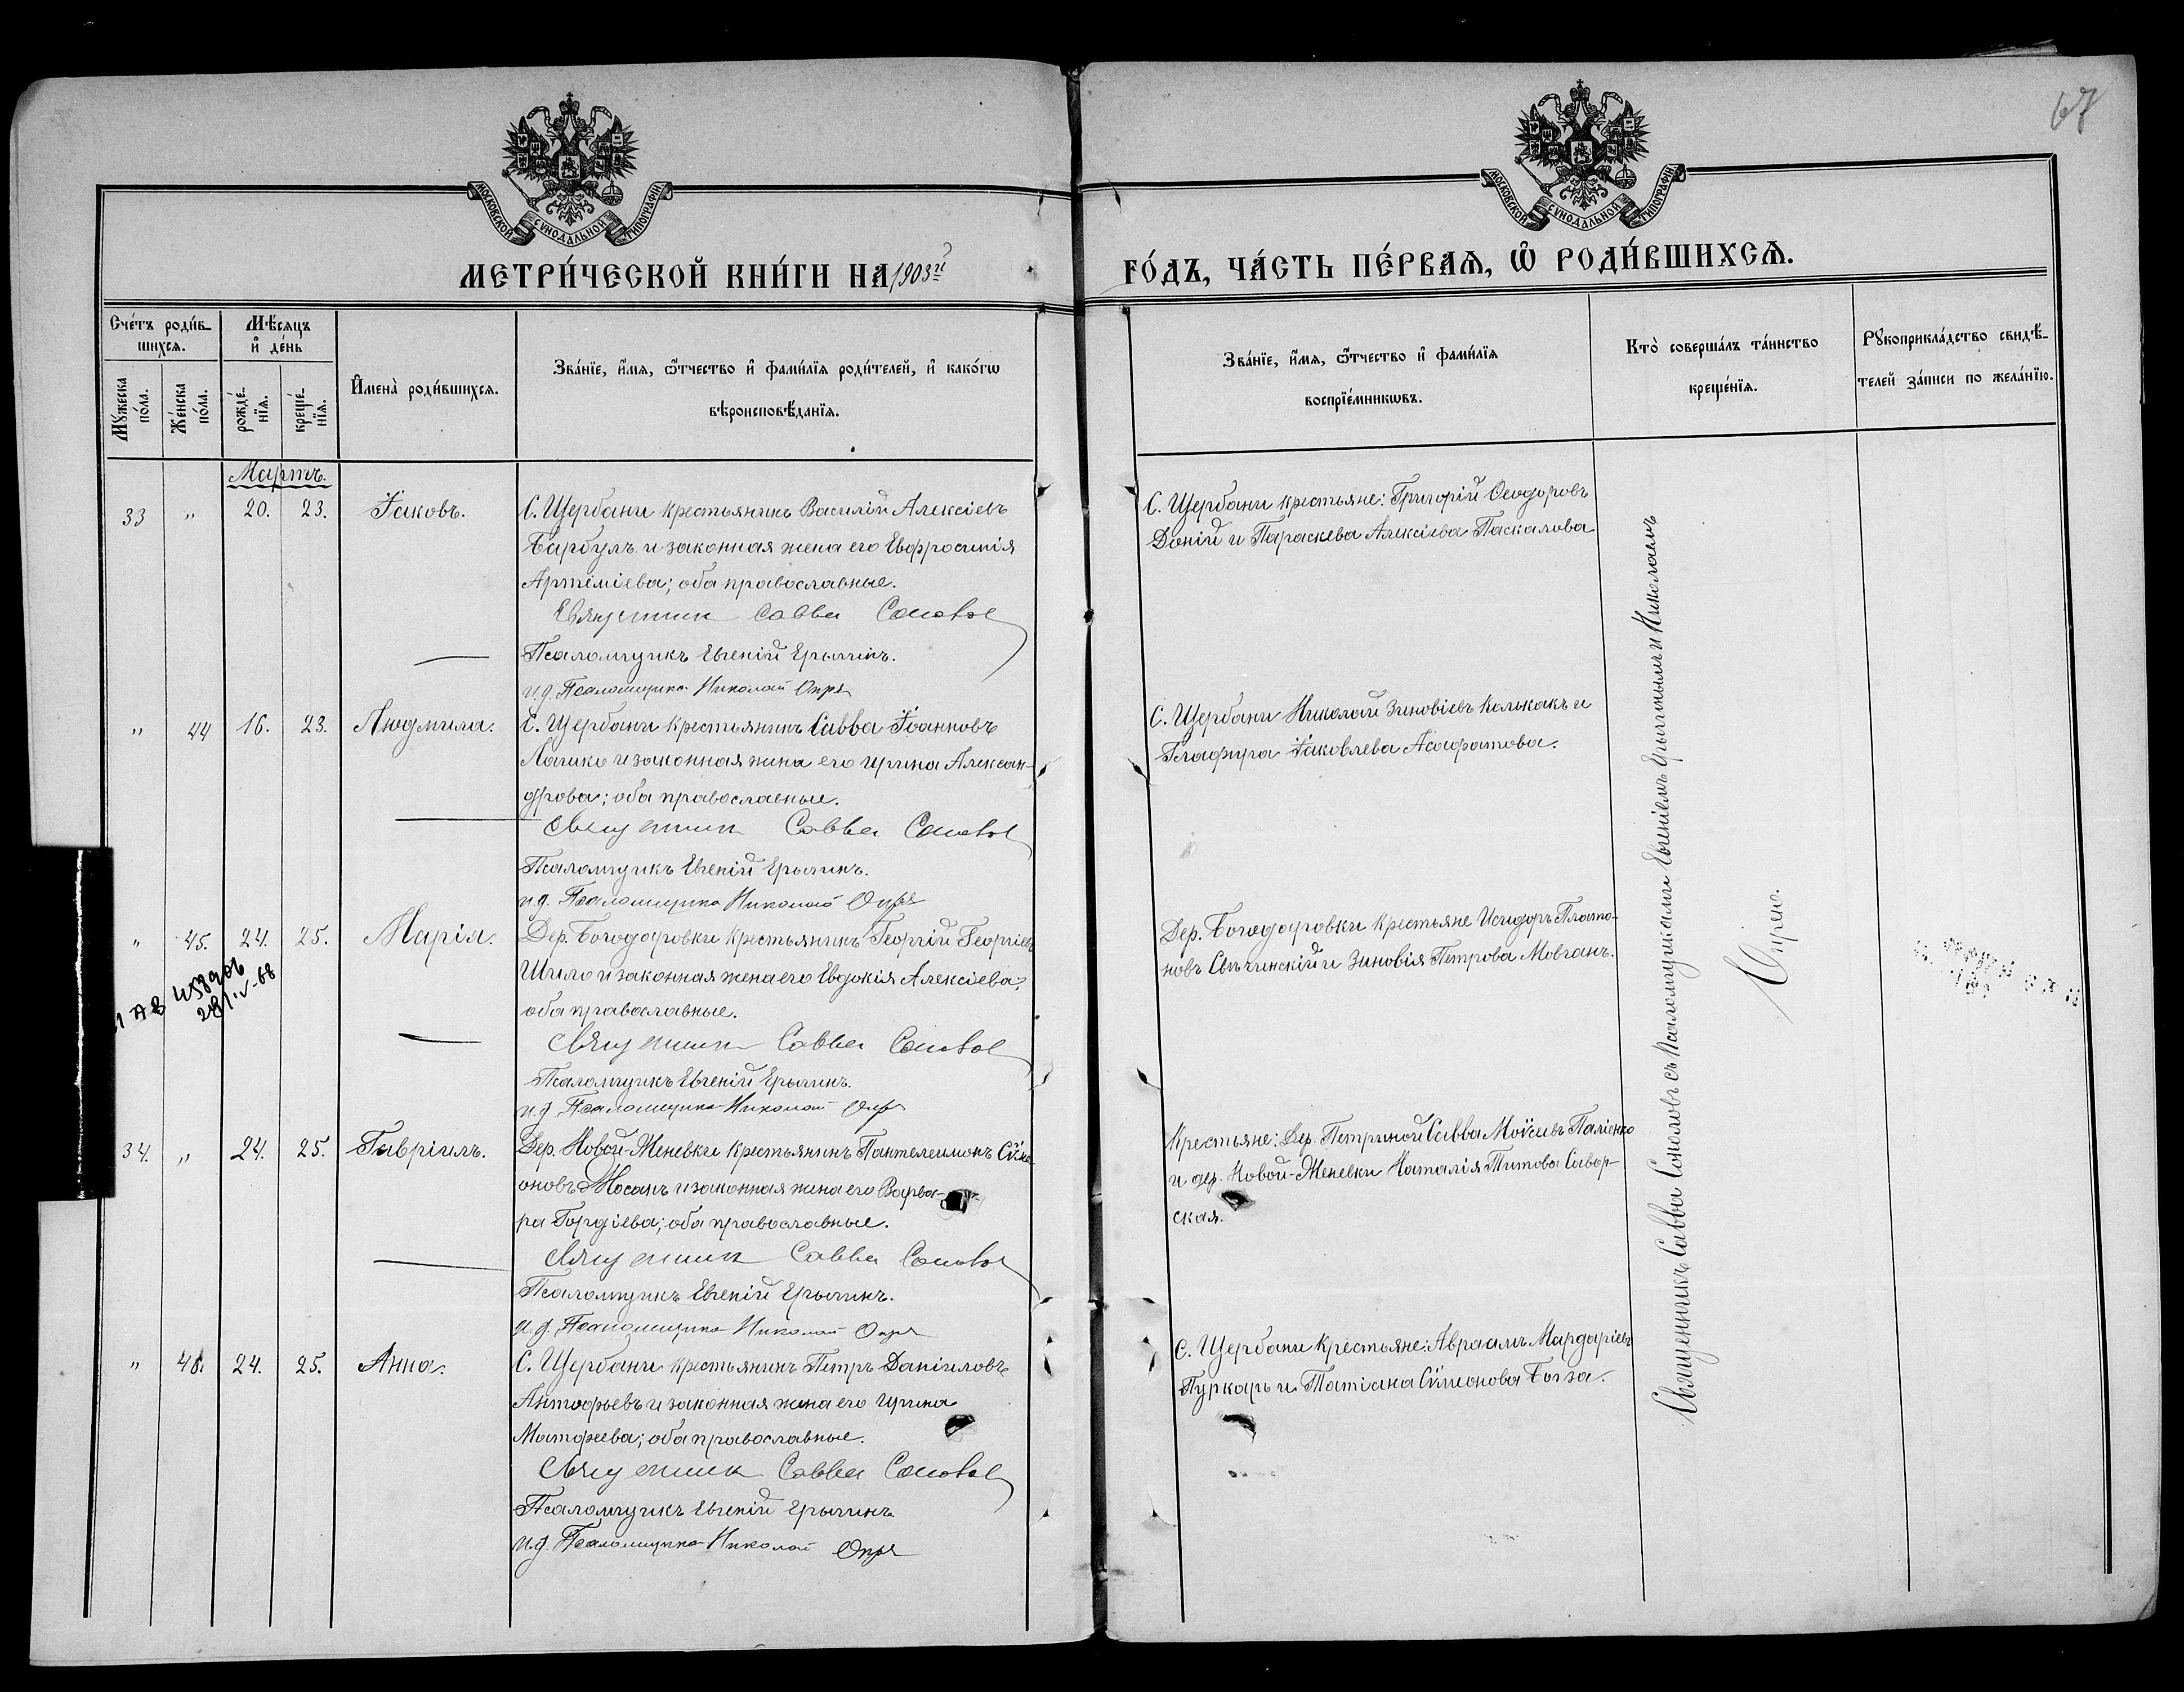 67
МОСКОВСКОЙ СѴНОДАЛЬНОЙ ТИПОГРАФІИ
МОСКОВСКОЙ СѴНОДАЛЬНОЙ ТИПОГРАФІИ
МЕТРИ́ЧЕСКОЙ КНИ́ГИ НА 1903й
ГО́ДЪ, ЧА́СТЬ ПЕ́РВАѦ, Ѡ҆ РОДИ́ВШИХСѦ.
Сче́тъ роди́в-
шихсѧ.
Мꙋ́жеска по́ла.
Же́нска по́ла.
Мѣ́сѧцъ
и҆ де́нь
рожде́-
нїѧ.
креще́-
нїѧ.
И҆мена̀ роди́вшихсѧ.
Зва́нїе, и҆́мѧ, ѻ҆́тчество и҆ фами́лїѧ роди́телей, и҆ како́гѡ
вѣроисповѣ́данїѧ.
Зва́нїе, и҆́мѧ, ѻ҆́тчество и҆ фами́лїѧ
воспрїе́мникѡвъ.
Кто̀ соверша́лъ та́инство
креще́нїѧ.
Рꙋкоприкла́дство свидѣ́-
телей за́писи по жела́нїю.
Мартъ.
33 " 20. 23. Іаковъ.
С. Щербани крестьянинъ Василій Алексіевъ
Барбулъ и законная жена его Евфросинія
Артеміева; оба православные.
Священник Савва Соколов
Псаломщикъ Евгеній Ерыгинъ.
и.д. Псаломщика Николай Опря
С. Щербани крестьяне: Григорій Ѳеодоровъ
Доній и Параскева Алексіева Паскалова
" 44 16. 23. Людмила.
С. Щербани крестьянинъ Савва Іоанновъ
и законная жена его Ирина Алексан-
дрова; оба православные.
Священник Савва Соколов
Псаломщикъ Евгеній Ерыгинъ.
и.д. Псаломщика Николай Опря
С. Щербани Николай Зиновіевъ Колькакъ и
Глафира Іаковлева Асафатова.
" 45. 24. 25. Марія.
Дер. Богодаровки крестьянинъ Георгій Георгіевъ
Шило и законная жена его Евдокія Алексіева;
оба православные.
Священник Савва Соколов
Псаломщикъ Евгеній Ерыгинъ.
и.д. Псаломщика Николай Опря
Дер. Богодаровки крестьяне Исидоръ Плато-
новъ Свѣчинскій и Зиновія Петрова Мовчанъ.
1 АВ 458906
28/IV-68
34. " 24. 25. Гавріилъ.
Дер. Новой-Женевки крестьянинъ Пантелеимонъ Сѵме-
оновъ Мосанъ и законная жена его Варва-
ра Гордіева; оба православные.
Священник Савва Соколов
Псаломщикъ Евгеній Ерыгинъ.
и.д. Псаломщика Николай Опря
Крестьяне: Дер. Петриной Савва Моѵсіевъ Паліенко
и дер. Новой-Женевки Наталія Титова Савор-
ская.
" 46. 24. 25. Анна.
С. Щербани крестьянинъ Петръ Даніиловъ
Антофьевъ и законная жена его Ирина
Матфеева; оба православные.
Священник Савва Соколов
Псаломщикъ Евгеній Ерыгинъ
и.д. Псаломщика Николай Опря
С. Щербани крестьяне: Авраамъ Мардаріевъ
Пуркарь и Татіана Сѵмеонова Богза.
Священникъ Савва Соколовъ съ Псаломщиками Евгеніемъ Ерыгинымъ и Николаемъ
Опрею.